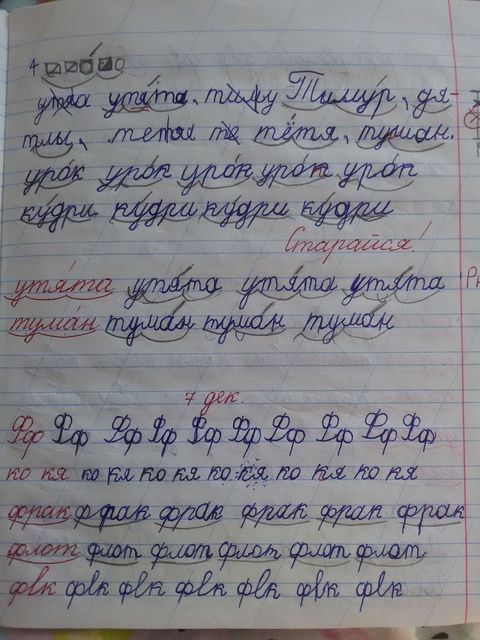 4
утята, Тимур, дя-
тлы, тётя, туман.
урок урок урок урок урок
кудри кудри кудри кудри
Старайся!
утята утята утята утята
туман туман туман туман
7 дек.
Фф Фф Фф Фф Фф Фф Фф Фф Фф Фф
ко кя ко кя ко кя ко кя ко кя ко кя
фрак фрак фрак фрак фрак фрак
флот флот флот флот флот флот
фвк фвк фвк фвк фвк фвк фвк